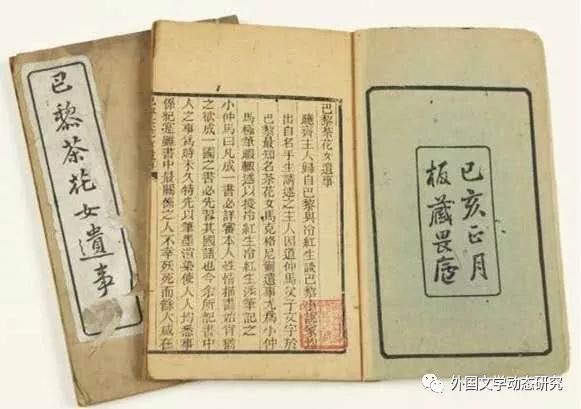 巴黎茶花女遺事
己亥正月
板藏畏廬
巴黎茶花女遺事
曉齋主人歸自巴黎與冷紅生談巴黎小說家均
出自名手生請述之主人因道仲馬父子文字於
巴黎最知名茶花女馬克格尼爾遺事尤爲小仲
馬極筆暇輒述以授冷紅生冷紅生涉筆記之
小仲馬曰凡成一書必詳審本人性情描畫始肖猶
之欲成一國之書必先習其國語也今余所記書中
人之事爲時未久特先以筆墨渲染使人人均悉事
係紀實雖書中最關係之人不幸殀死而餘人咸在
外国文学动态研究